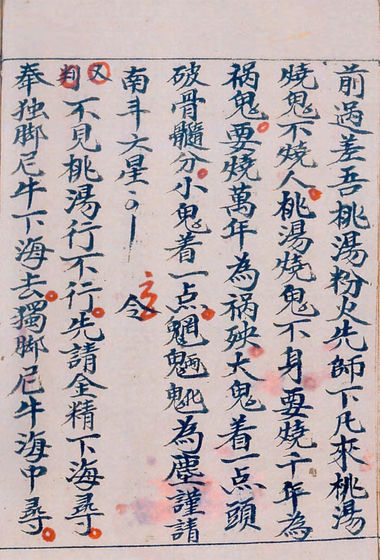 前迥差吾桃湯粉火先師下凡來桃湯
燒鬼不燒人桃湯燒鬼不身要燒千年為
祸鬼要燒萬年為祸殃大鬼着一点頭
破骨髓分小鬼着一点魍魎魁為塵謹請
南斗六星 令
又判不見桃湯行不行先請金精下海尋
奉独脚尼牛下海去獨脚尼牛海中尋